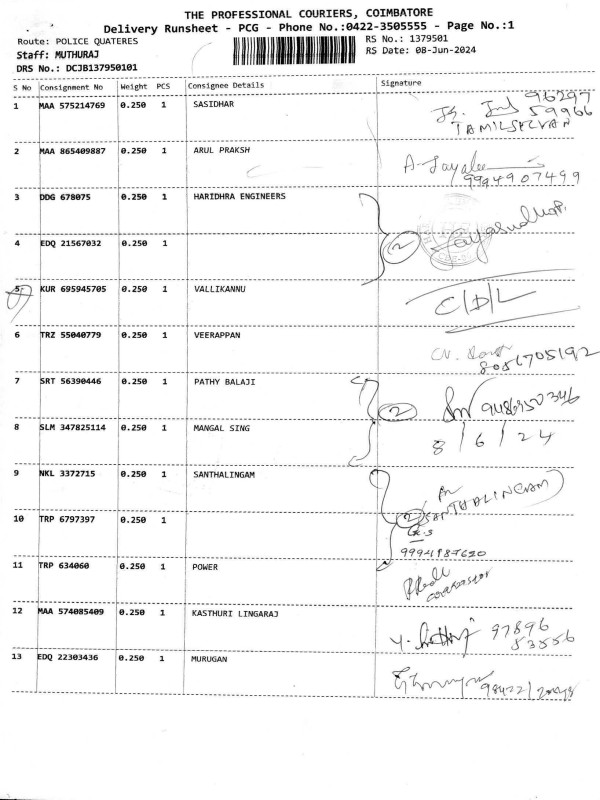 THE PROFESSIONAL COURIERS, COIMBATORE
Delivery Runsheet - PCG - Phone No.:0422-3505555 - Page No.:1
Route: POLICE QUATERES
RS No.: 1379501
Staff: MUTHURAJ
RS Date: 08-Jun-2024
DRS No.: DCJB137950101
S No Consignment No Weight PCS Consignee Details Signature
1 MAA 575214769 0.250 1 SASIDHAR
96297
59966
TAMILSELVAN
2 MAA 865409887 0.250 1 ARUL PRAKSH
9994907499
3 DDG 678075 0.250 1 HARIDHRA ENGINEERS
2
4 EDQ 21567032 0.250 1
5 KUR 695945705 0.250 1 VALLIKANNU
C/D/L
6 TRZ 55040779 0.250 1 VEERAPPAN
7 SRT 56390446 0.250 1 PATHY BALAJI
2
8 SLM 347825114 0.250 1 MANGAL SING
8/6/24
9 NKL 3372715 0.250 1 SANTHALINGAM
2
SANTHALINGAM)
10 TRP 6797397 0.250 1
11 TRP 634060 0.250 1 POWER
12 MAA 574085409 0.250 1 KASTHURI LINGARAJ
97896
53556
13 EDQ 22303436 0.250 1 MURUGAN